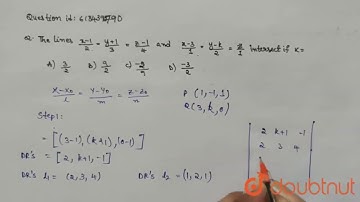 Question id: 6434317590
Q. The lines x-1/2 = y+1/3 = z-1/4 and x-3/1 = y-k/2 = z/1 intersect if k=
A) 3/2 B) 9/2 C) -2/9 D) -3/2
x-x0/l = y-y0/m = z-z0/n P (1,-1,1)
Q(3, k, 0)
Step1:
= [(3-1), (k+1), (0-1)]
DR's = [2, k+1, -1]
DR's l1 = (2, 3, 4) DR's l2 = (1, 2, 1)
2 k+1 -1
2 3 4
doubtnut